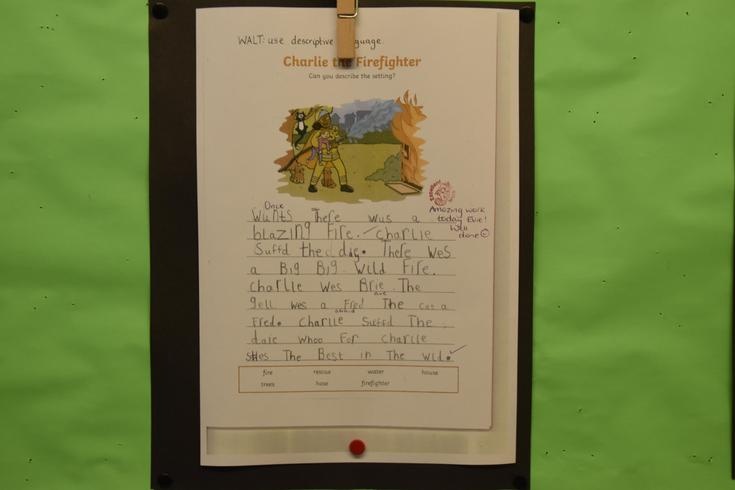 WALT: use descriptive language.
Charlie the Firefighter
Can you describe the setting?
Once
Wunts There wus a
blazing Fire. Charlie
Suffd the daig. There Wes
a Big Big Wild Fire.
Charlie Wes Brie. The
gell wes a Fred The Cat a
Fred. Charlie Suffd The
daie Whoo For Charlie
Shes The Best in The wld.
Amazing work
today Evie!
Well
done
fire rescue water house
trees hose firefighter